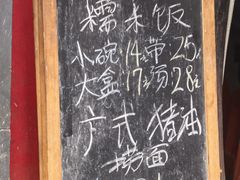 糯米饭
小碗14带25元
大盒17汤28元
方式猪油
捞面